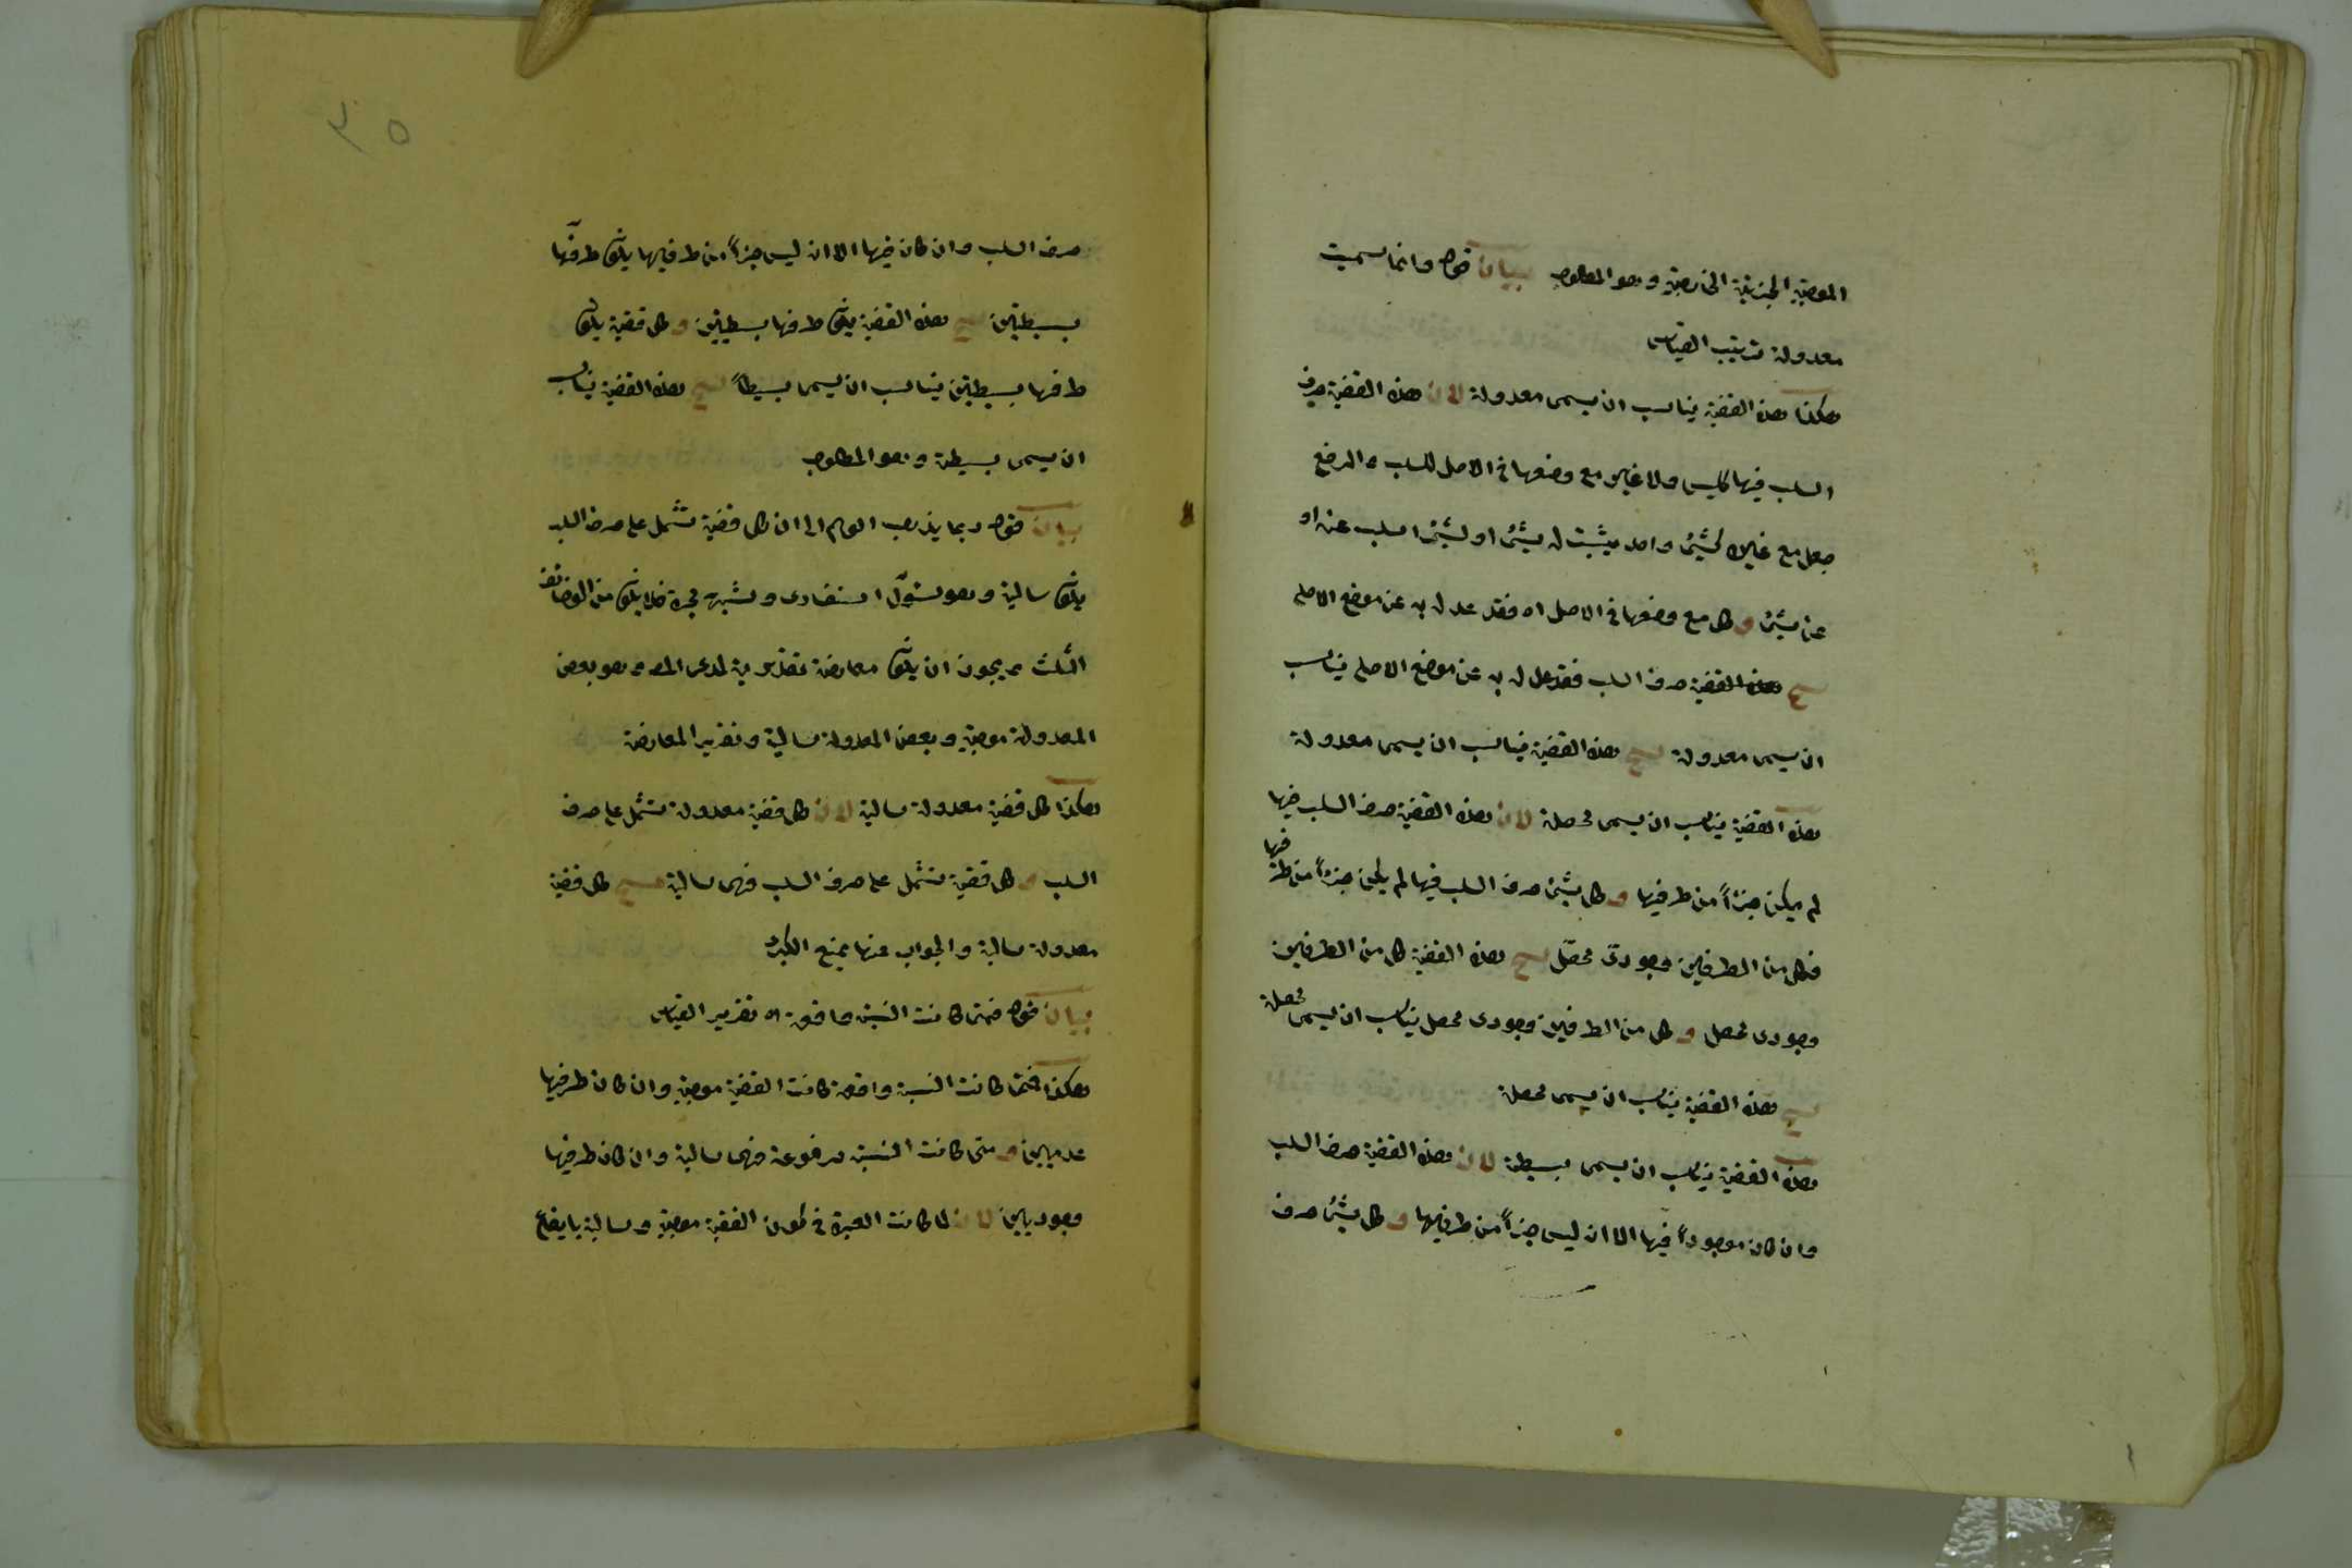 الموجبة الجزئية الخارجية وهو المطلوب بيان قوله وانما سميت
معدولة ترتيب القياس
هكذا هذه القضية يناسب ان يسمى معدولة لان هذه القضية حرف
السلب فيها كليس ولا غير مع وضعها في الاصل للسلب والرفع
جعل مع غيره كشيئ واحد يثبت له شيئ او لشيئ اسلب عنه او
عن شيئ و كل مع وضعها في الاصل اه فقد عدل به عن موضع الاصلى
هذه القضية حرف السلب فقد عدل به عن موضع الاصلى يناسب
ان يسمى معدولة هذه القضية يناسب ان يسمى معدولة
هذه القضية يناسب ان يسمى محصلة لان هذه القضية حرف السلب فيها
لم يكن جزأ من طرفيها و كل شيئ حرف السلب فيها لم يكن جزأ من طرفيها
فكل من الطرفين وجودى محصل هذه القضية كل من الطرفين
وجودى محصل و كل من الطرفين وجودى محصل يناسب ان يسمى محصلة
هذه القضية يناسب ان يسمى محصلة
هذه القضية يناسب ان يسمى بسيطة لان هذه القضية حرف السلب
وان كان موجوداً فيها الا ان ليس جزأ من طرفيها و كل شيئ حرف
٣٥
حرف السلب وان كان فيها الا ان ليس جزأ من طرفيها يكون طرفها
بسيطين هذه القضية يكون طرفها بسيطين و كل قضية يكون
طرفها بسيطين يناسب ان يسمى بسيطاً هذه القضية يناسب
ان يسمى بسيطة وهو المطلوب
بيان قوله ربما يذهب الوهم الى ان كل قضية تشمل على حرف السلب
يكون سالبة وهو
الثلث ويجوز ان يكون معارضة تقديرية لمدعى المص وهو بعض
المعدولة موجبة وبعض المعدولة سالبة وتقرير المعارضة
هكذا كل قضية معدولة سالبة لان كل قضية معدولة تشمل على حرف
السلب و كل قضية تشمل على حرف السلب فهى سالبة كل قضية
معدولة سالبة والجواب عنها بمنع الكبرى
بيان قوله فمتى كانت النسبة واقعة اه تقرير القياس
هكذا فمتى كانت النسبة واقعة كانت القضية موجبة وان كان طرفيها
عدميين و متى كانت النسبة مرفوعة فهى سالبة وان كان طرفيها
وجوديين لان لما كانت العبرة في كون القضية موجبة وسالبة بايقاع